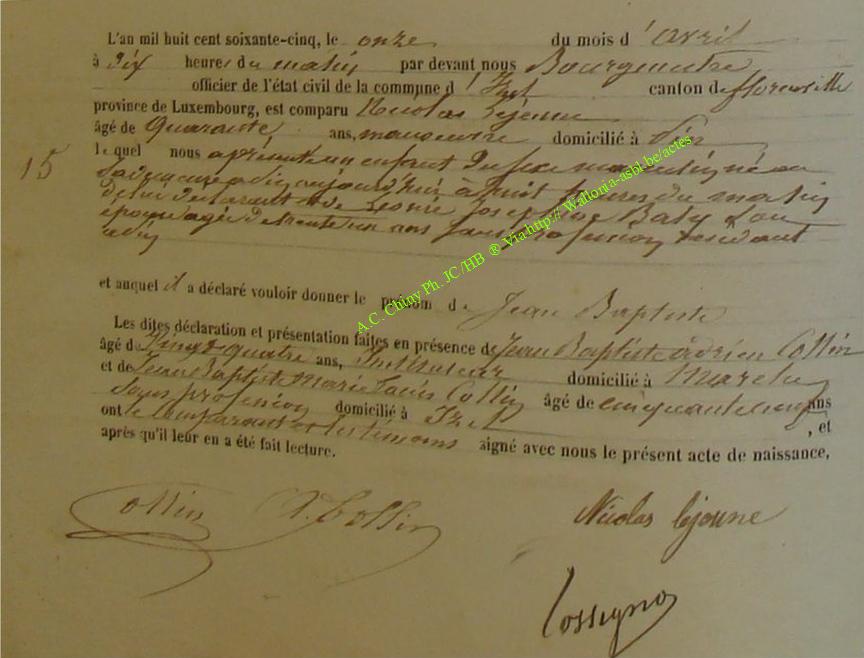 L'an mil huit cent soixante-cinq, le onze du mois d'avril
à Dix heures du matin par devant nous Bourgmestre
officier de l'état civil de la commune d'Izel canton de florenville
province de Luxembourg, est comparu Nicolas Lejeune
âgé de Quarante ans, manoeuvre domicilié à
15
lequel nous a présenté un enfant du sexe masculin né en
sa demeure a aujourd'hui à huit heures du matin
de lui déclarant et de Josephine Baty son
épouse agée de trente un ans sans profession residant
et auquel il a déclaré vouloir donner le prénom de Jean Baptiste
Les dites déclaration et présentation faites en présence de Jean Baptiste adrien Collin
âgé de Vingt quatre ans, Instituteur domicilié à
et de Jean Baptiste Marie Louis Collin âgé de cinquante cinq ans
Sans profession domicilié à Izel , et
ont le comparant et les témoins signé avec nous le présent acte de naissance,
après qu'il leur en a été fait lecture.
Collin A. Collin Nicolas lejeune
A.C. Chiny Ph. JC/HB ® Via http:// Wallonia-asbl.be/actes